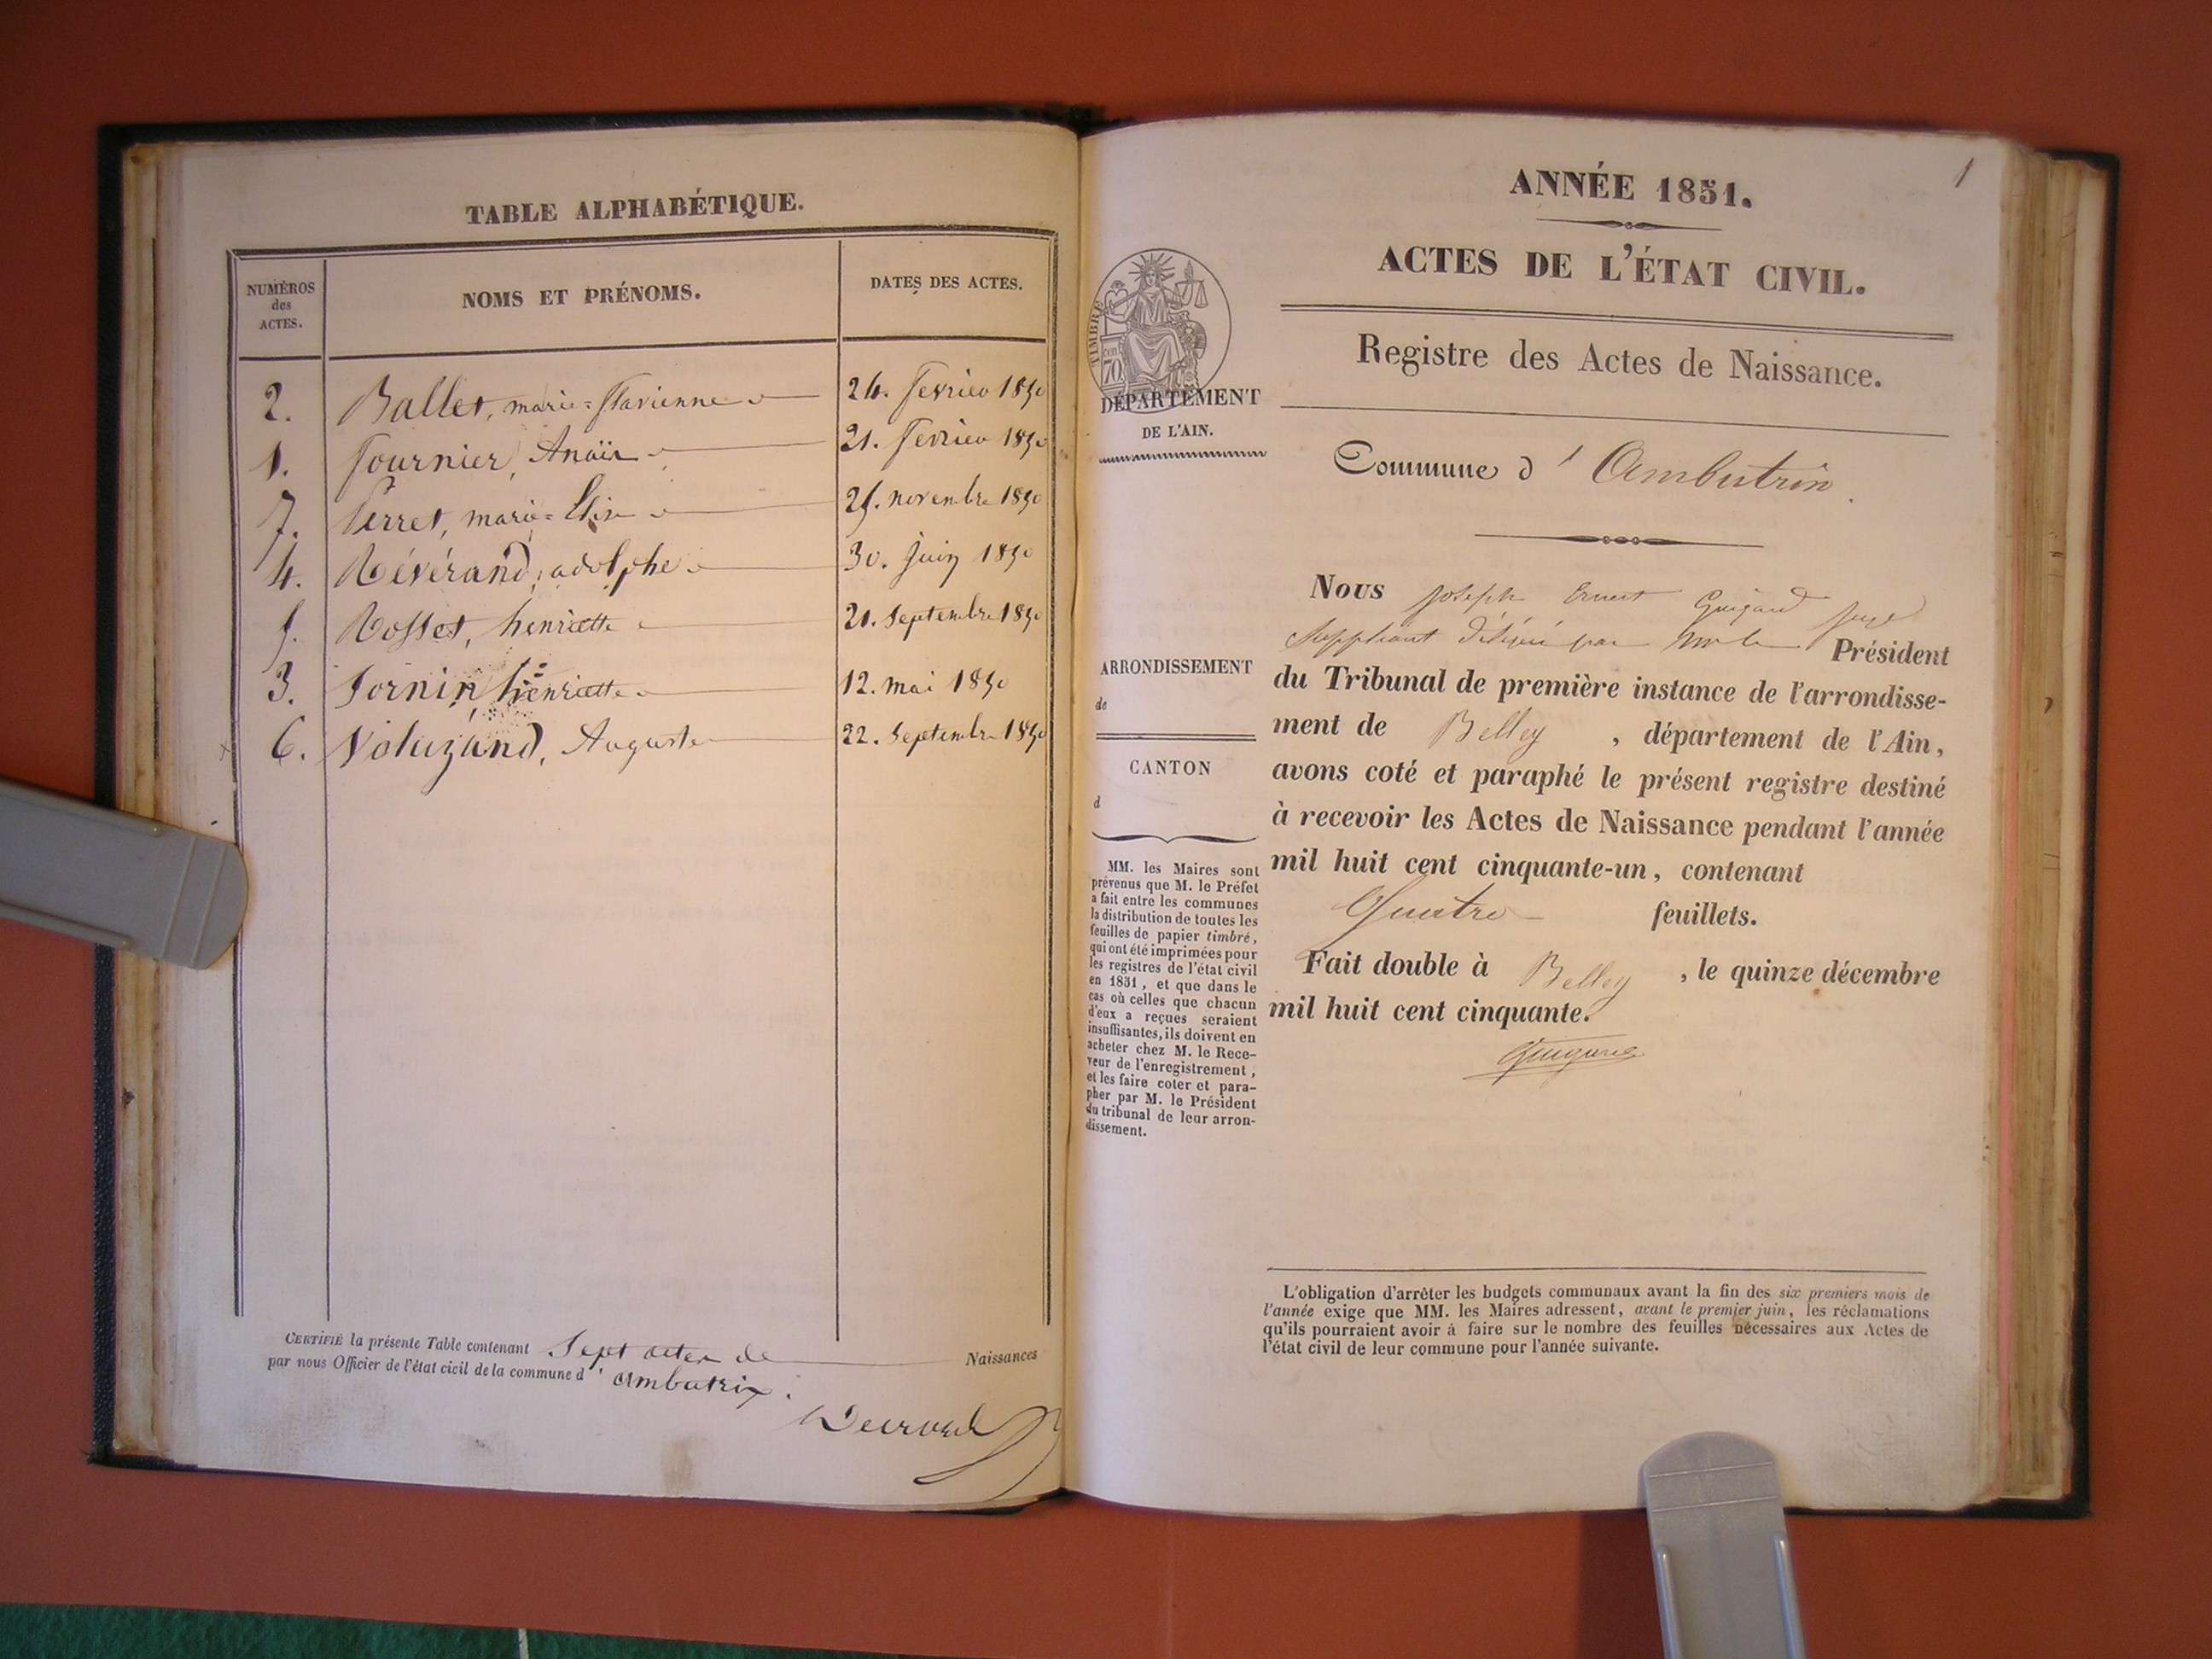 TABLE ALPHABÉTIQUE.
NUMÉROS des ACTES.
NOMS ET PRÉNOMS.
DATES DES ACTES.
2. Ballet, marie=flavienne 24. fevrier 1850
1. fournier, Anaïs 21. fevrier 1850
7. Perret, marie=Elise 25. novembre 1850
4. Révérand, adolphe 30. juin 1850
5. Rosset, henriette 20. Septembre 1850
3. Tornin, henriette 12. mai 1850
6. Voluzand, Auguste 22. Septembre 1850
CERTIFIÉ la présente Table contenant Sept actes de Naissances
par nous Officier de l'état civil de la commune d' ambutrix.
1
ANNÉE 1851.
ACTES DE L'ÉTAT CIVIL.
Registre des Actes de Naissance.
TIMBRE
70
DÉPARTEMENT
DE L'AIN.
Commune d' Ambutrix
Nous Joseph Ernest Guigard juge
suppléant délégué par Mr le Président
du Tribunal de première instance de l'arrondisse-
ment de Belley, département de l'Ain,
avons coté et paraphé le présent registre destiné
à recevoir les Actes de Naissance pendant l'année
mil huit cent cinquante-un, contenant
Quatre feuillets.
Fait double à Belley, le quinze décembre
mil huit cent cinquante.
ARRONDISSEMENT
de
CANTON
d
MM. les Maires sont
prévenus que M. le Préfet
a fait entre les communes
la distribution de toutes les
feuilles de papier timbré,
qui ont été imprimées pour
les registres de l'état civil
en 1851, et que dans le
cas où celles que chacun
d'eux a reçues seraient
insuffisantes, ils doivent en
acheter chez M. le Rece-
veur de l'enregistrement,
et les faire coter et para-
pher par M. le Président
du tribunal de leur arron-
dissement.
L'obligation d'arrêter les budgets communaux avant la fin des six premiers mois de
l'année exige que MM. les Maires adressent, avant le premier juin, les réclamations
qu'ils pourraient avoir à faire sur le nombre des feuilles nécessaires aux Actes de
l'état civil de leur commune pour l'année suivante.